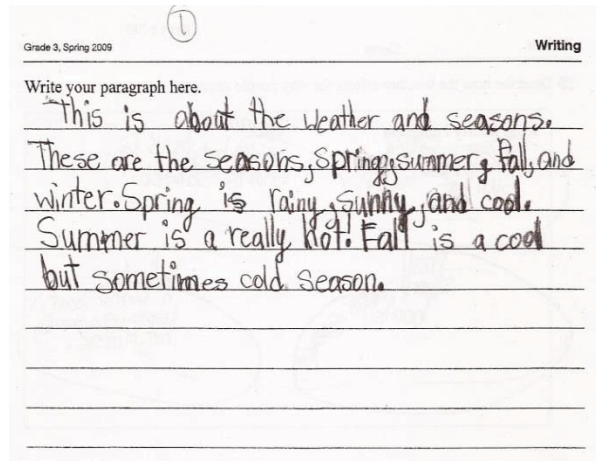 1
Grade 3, Spring 2009
Writing
Write your paragraph here.
This is about the weather and seasons.
These are the seasons, Spring, summer, fall, and
winter. Spring is rainy, sunny, and cool.
Summer is a really hot! Fall is a cool
but sometimes cold season.